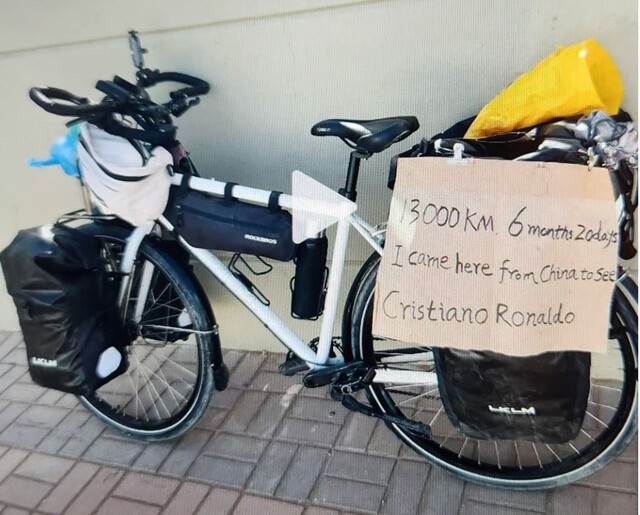 ROCKBROS
13000 KM. 6 months 20 days
I came here from China to See
Cristiano Ronaldo